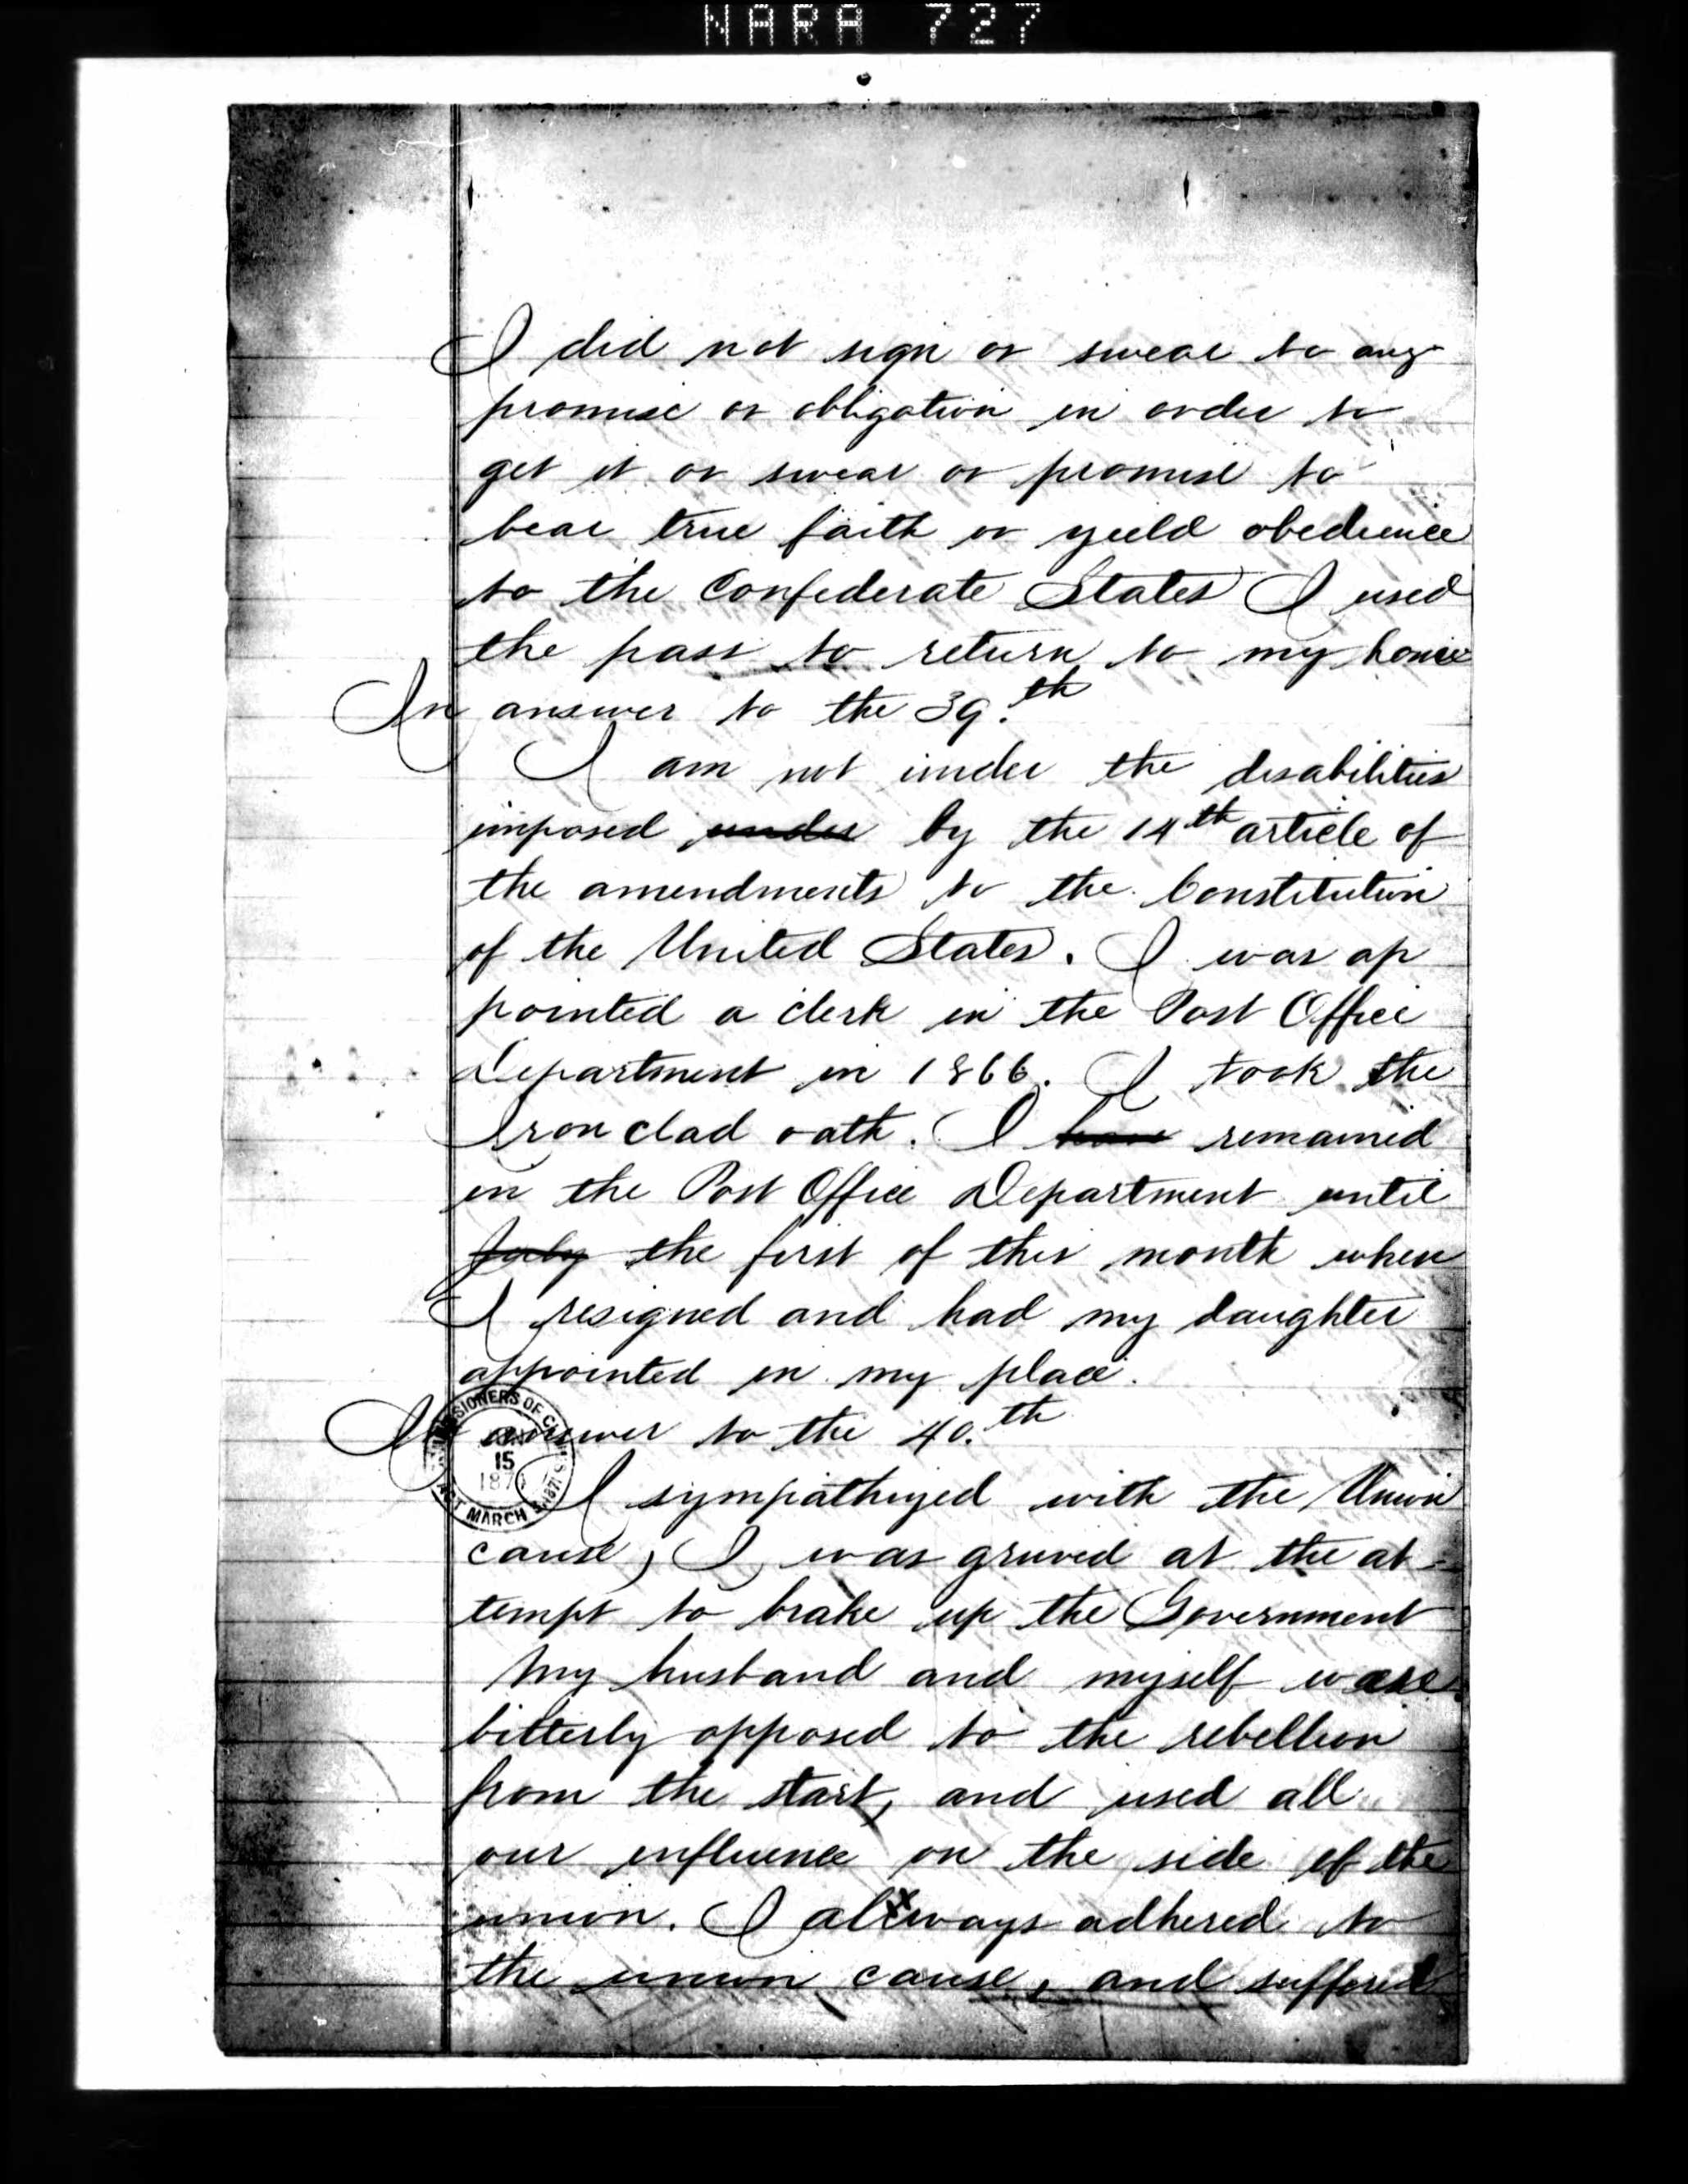 NARA 727
I did not sign or swear to any
promise or obligation in order to
get it or swear or promise to
bear true faith or yield obedience
to the Confederate States I used
the pass to return to my home
In answer to the 39.th
I am not under the disabilities
imposed under by the 14th article of
the amendments to the Constitution
of the United States. I was ap
pointed a clerk in the Post Office
Department in 1866. I took the
Iron clad oath. I have remained
in the Post Office Department until
July the first of this month when
I resigned and had my daughter
appointed in my place.
In answer to the 40.th
15
MARCH 3, 1871
I sympathized with the Union
cause, I was grieved at the at-
tempt to brake up the Government
My husband and myself ware
bitterly opposed to the rebellion
from the start, and used all
our influence on the side of the
union. I always adhered to
the union cause, and suffered